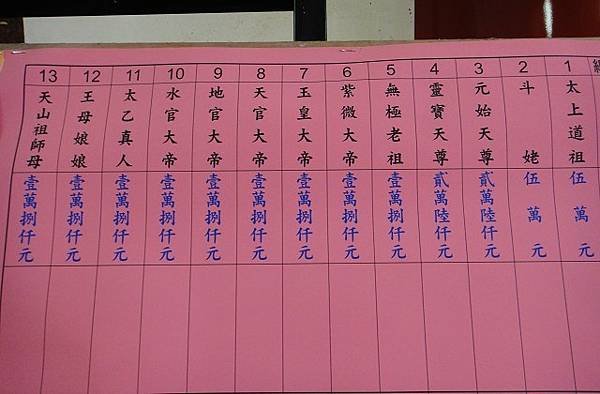 1
太上道祖
伍萬元
2
斗姥
伍萬元
3
元始天尊
貳萬陸仟元
4
靈寶天尊
貳萬陸仟元
5
無極老祖
壹萬捌仟元
6
紫微大帝
壹萬捌仟元
7
玉皇大帝
壹萬捌仟元
8
天官大帝
壹萬捌仟元
9
地官大帝
壹萬捌仟元
10
水官大帝
壹萬捌仟元
11
太乙真人
壹萬捌仟元
12
王母娘娘
壹萬捌仟元
13
天山祖師母
壹萬捌仟元